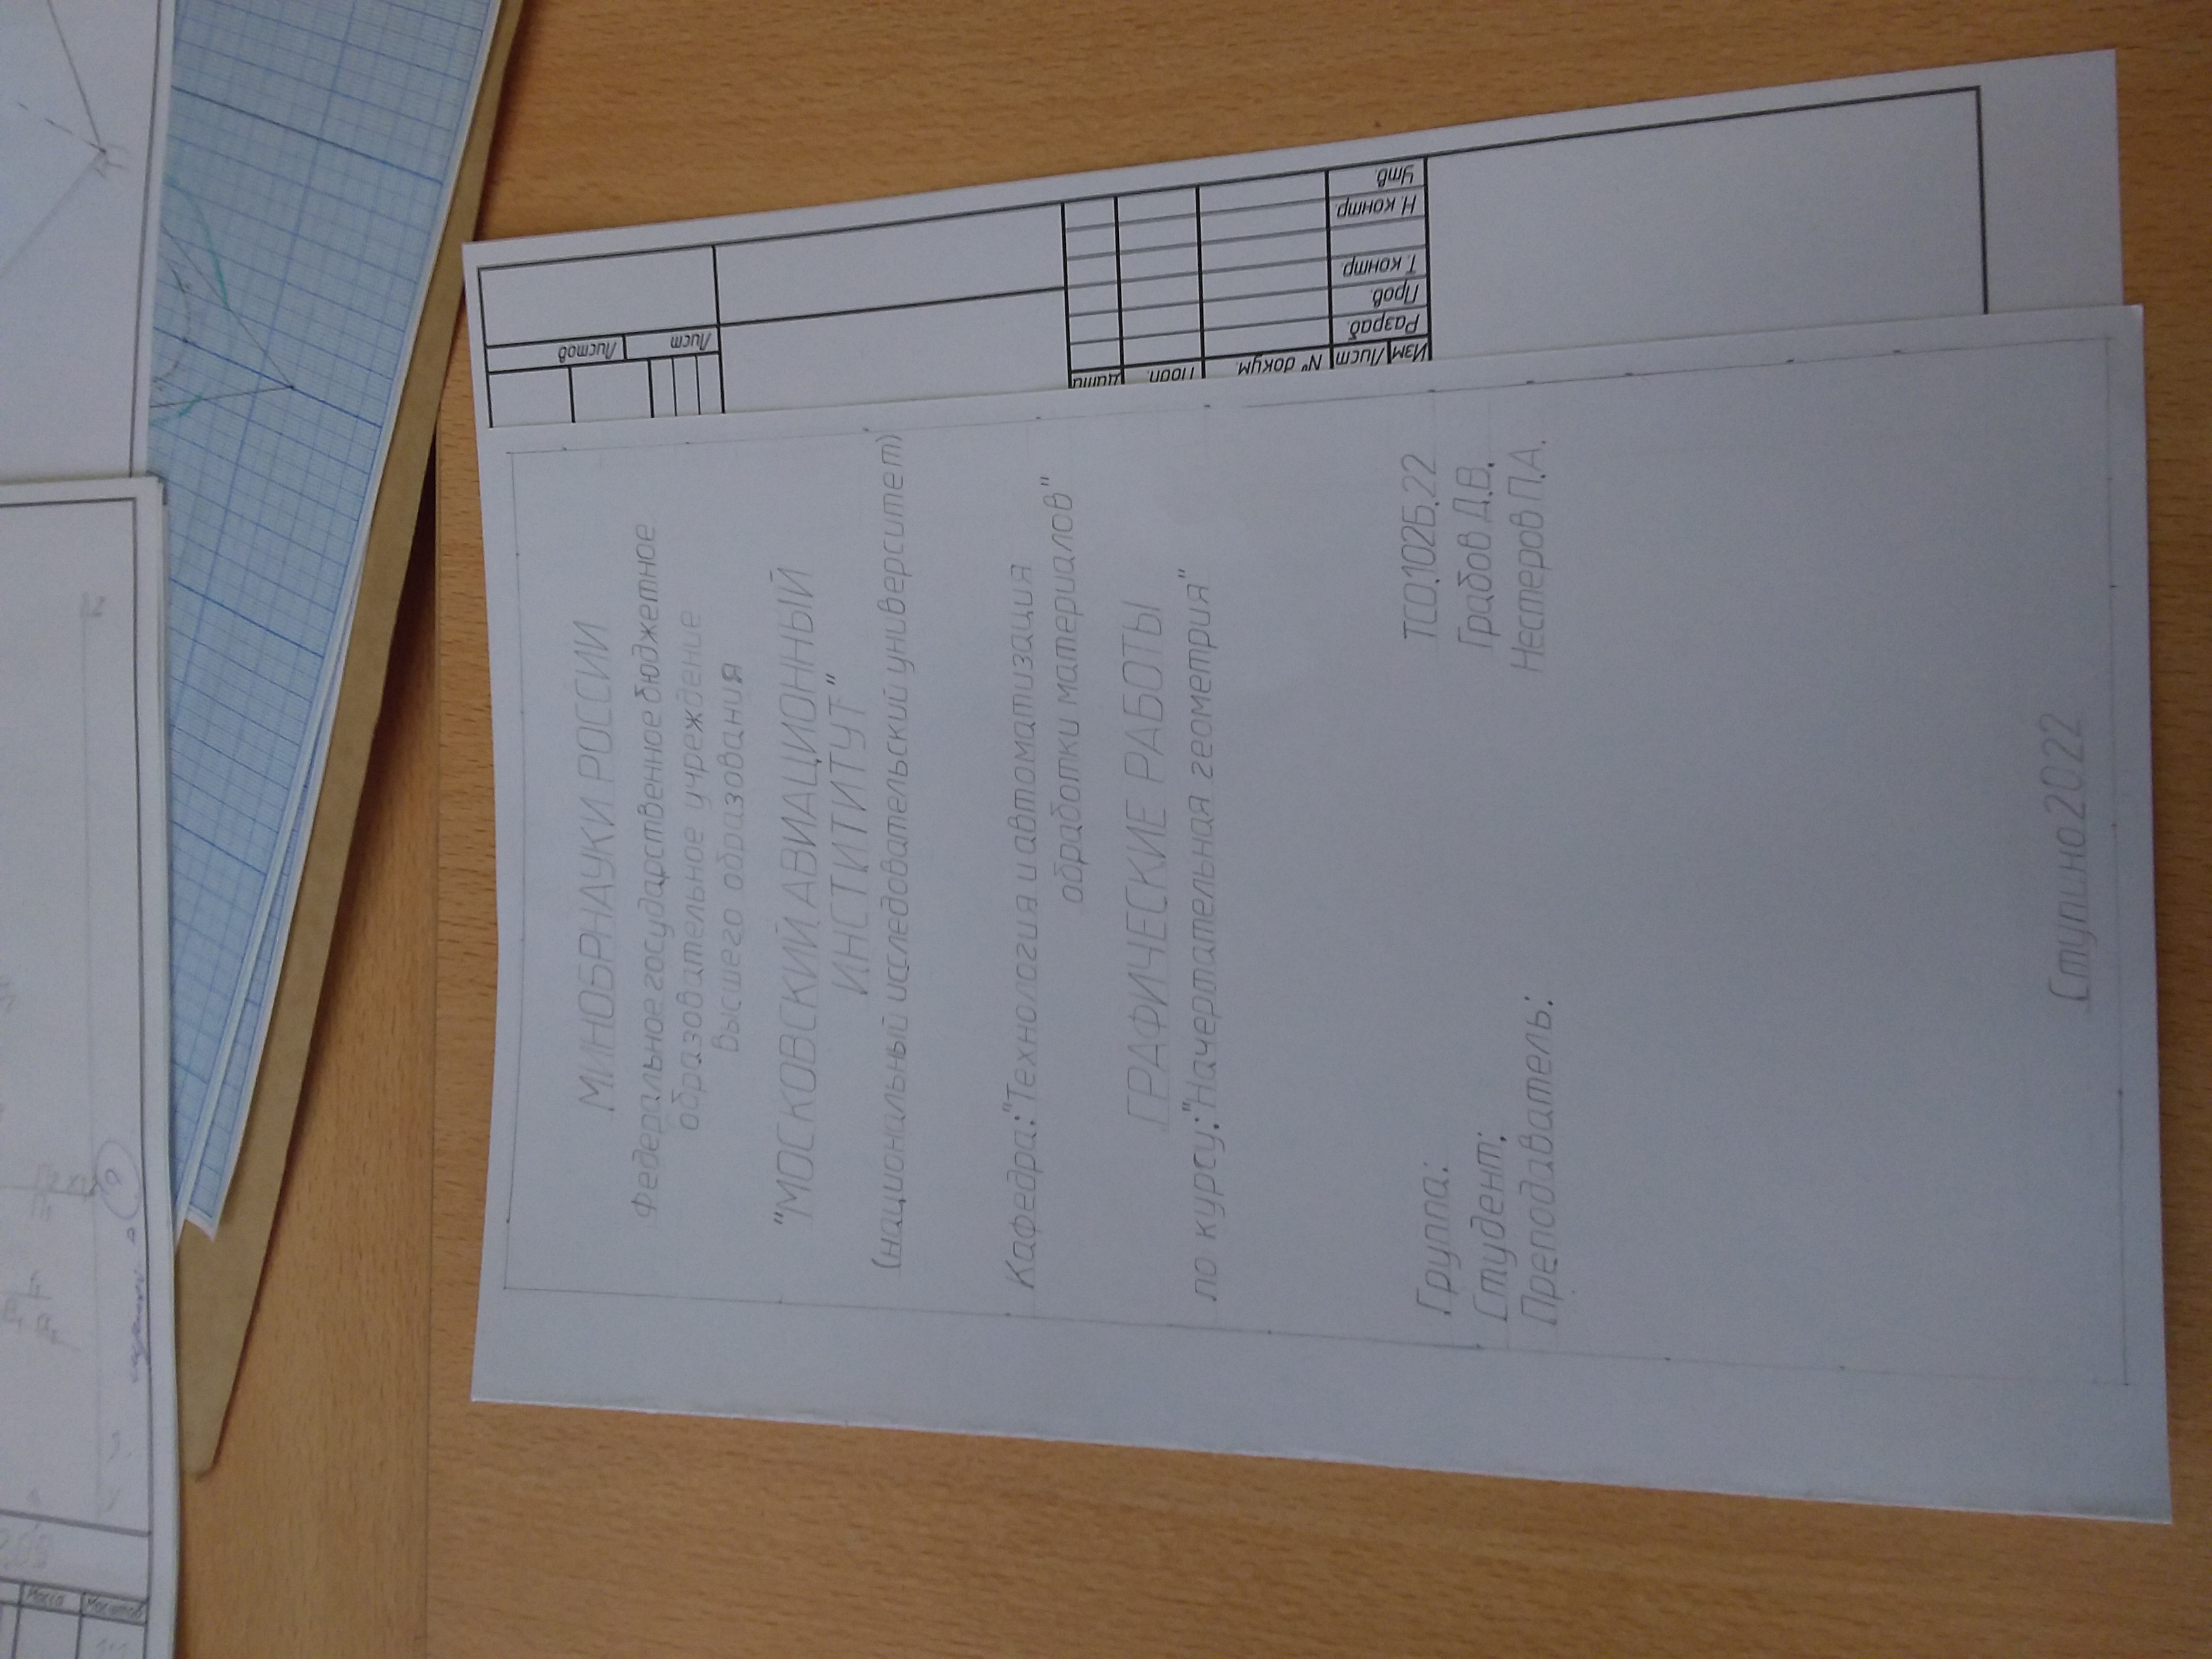 Масса
МИНОБРНАУКИ РОССИИ
Федеральное государственное бюджетное
образовательное учреждение
высшего образования
"МОСКОВСКИЙ АВИАЦИОННЫЙ
ИНСТИТИТУТ"
(национальный исследовательский университет)
Кафедра:"Технология и автоматизация
обработки материалов"
ГРАФИЧЕСКИЕ РАБОТЫ
по курсу:"Начертательная геометрия"
Группа: ТСО.102Б.22
Студент: Грабов Д.В.
Преподаватель: Нестеров П.А.
Ступино 2022
Лист Листов
Изм Лист № докум. Подп. Дата
Разраб.
Пров.
Т. контр.
Н. контр.
Утв.